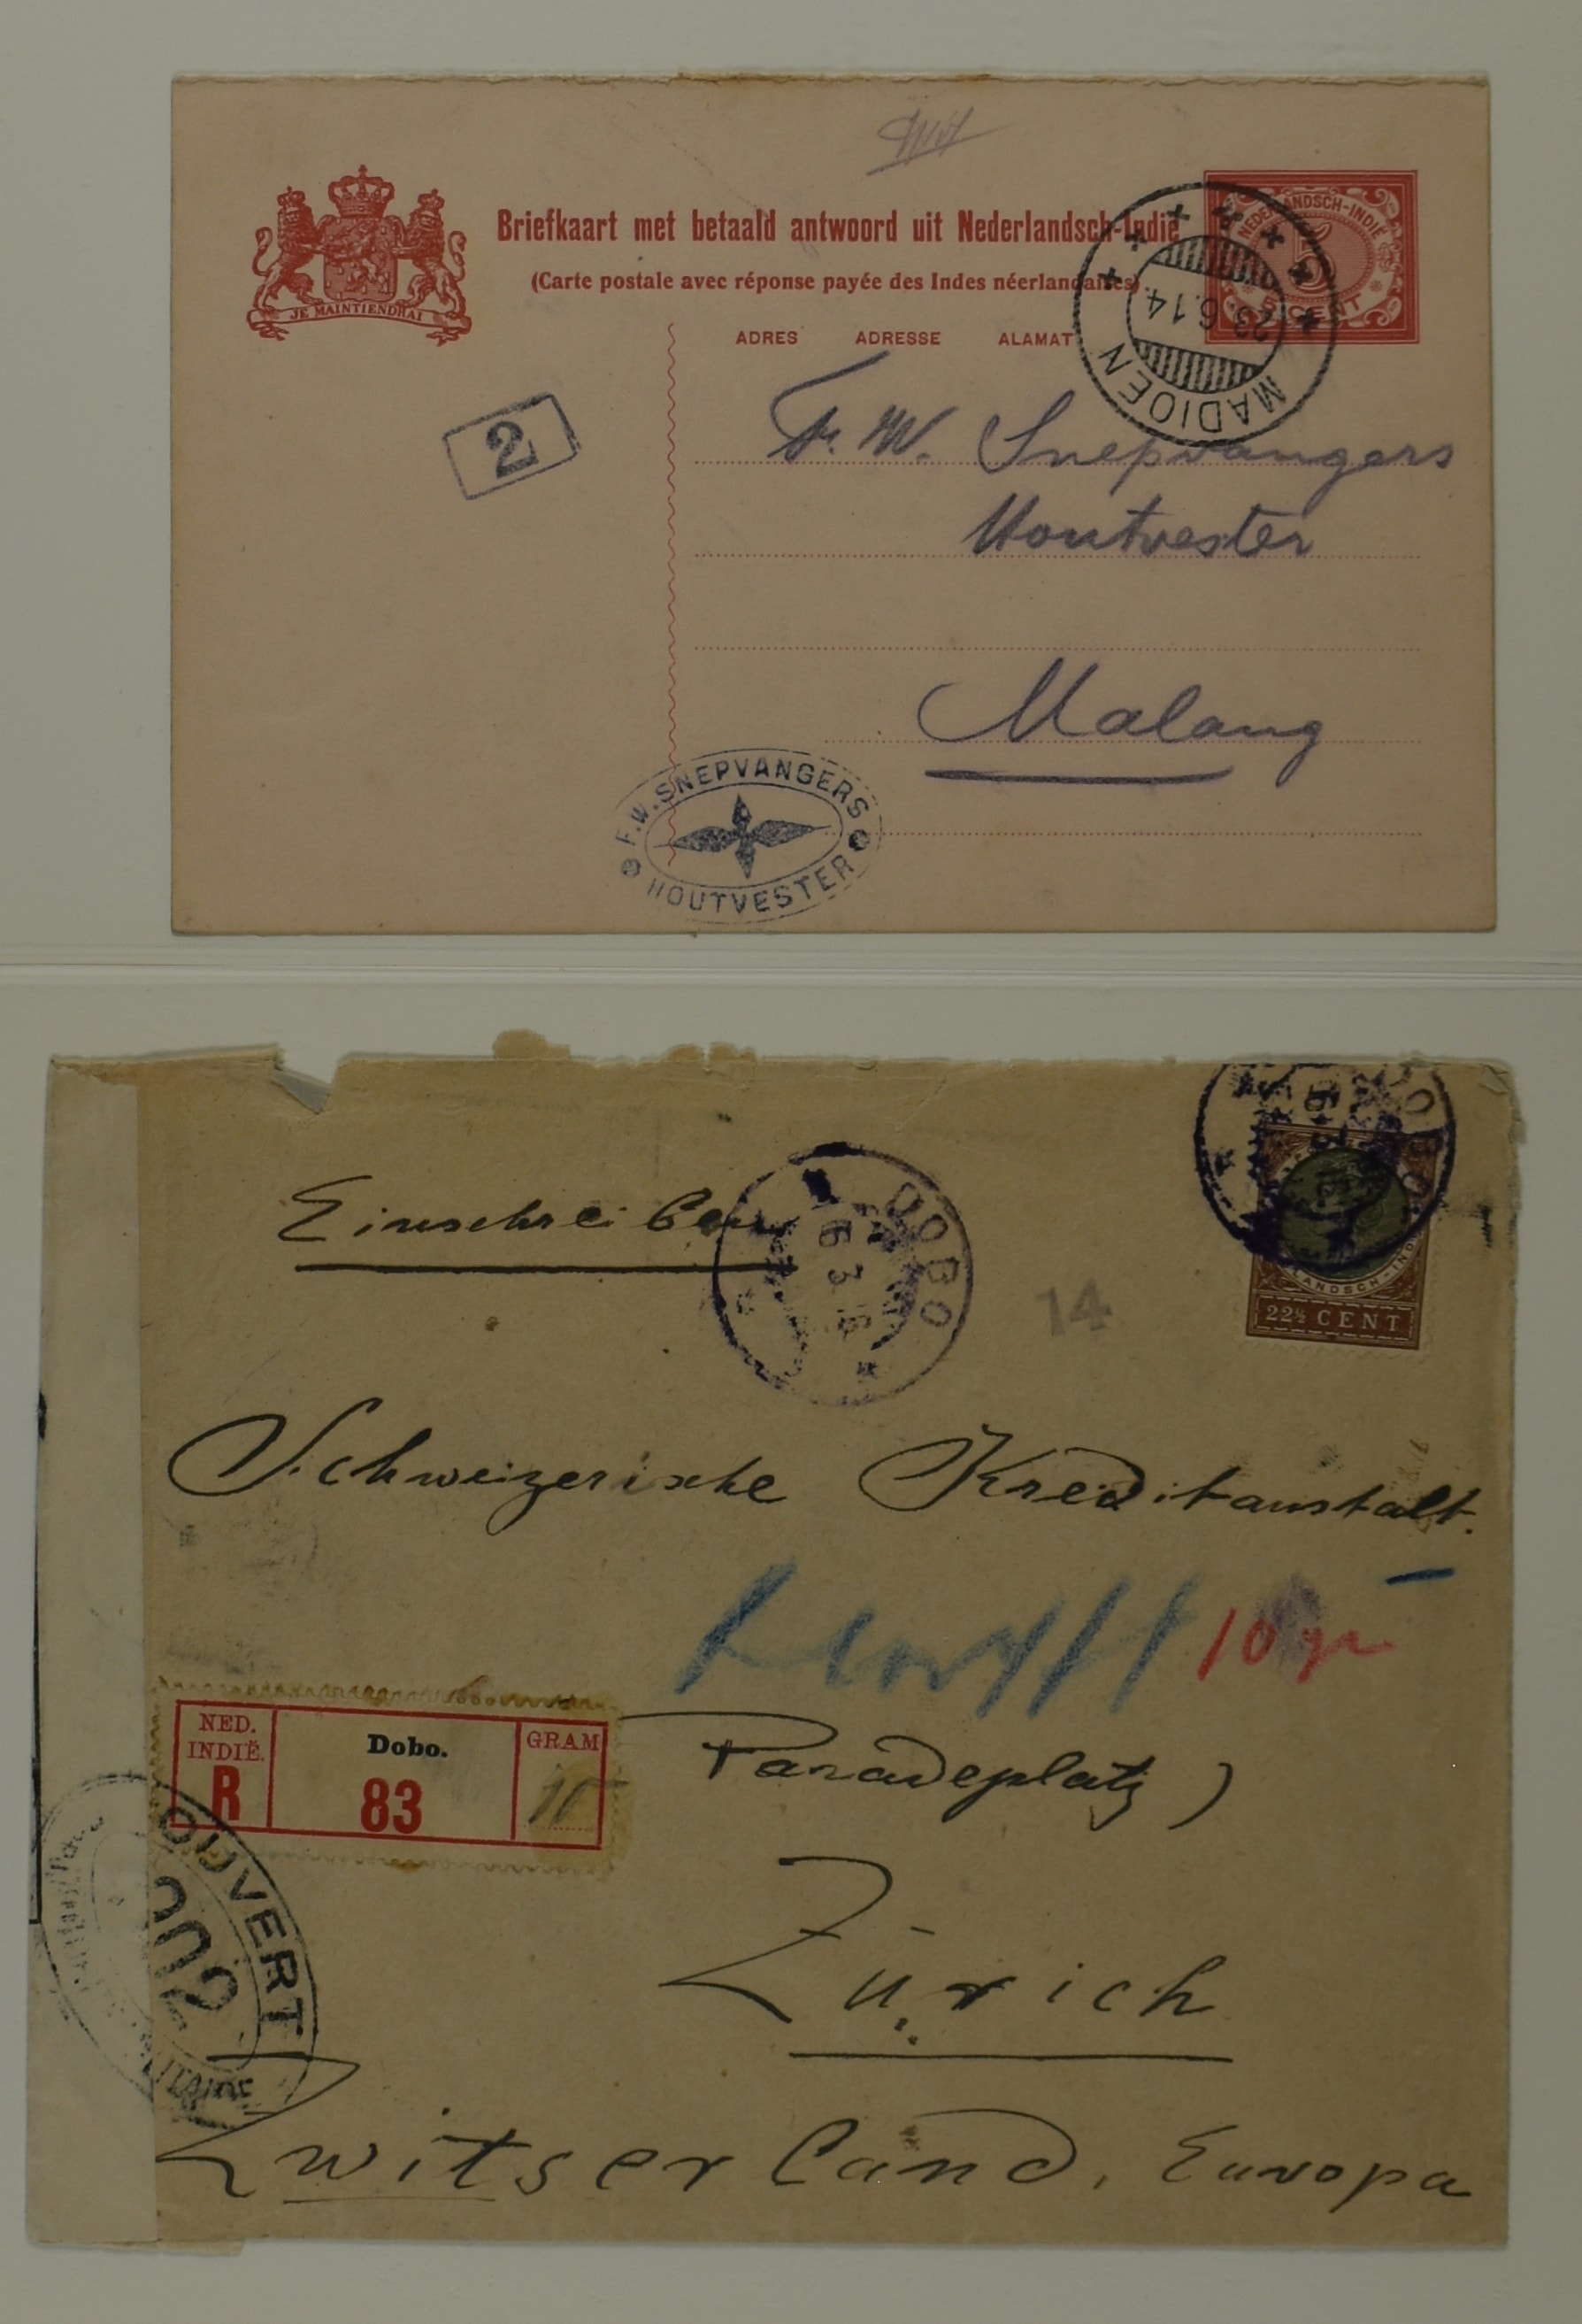 Briefkaart met betaald antwoord uit Nederlandsch-Indië
(Carte postale avec réponse payée des Indes néerlandaises)
JE MAINTIENDRAI
NEDERLANDSCH-INDIË
5
CENT
MADIOEN
23.6.14.
ADRES ADRESSE ALAMAT
2
Fr. W. Snepvangers
Houtvester
Malang
F.W. SNEPVANGERS
HOUTVESTER
Einschreiben
DOBO
16 3 16
DOBO
14
22½ CENT
Schweizerische Kreditanstalt.
10 gr
NED. INDIË.
R
Dobo.
83
GRAM
Paradeplatz)
OUVERT
Zürich
Zwitserland, Europa